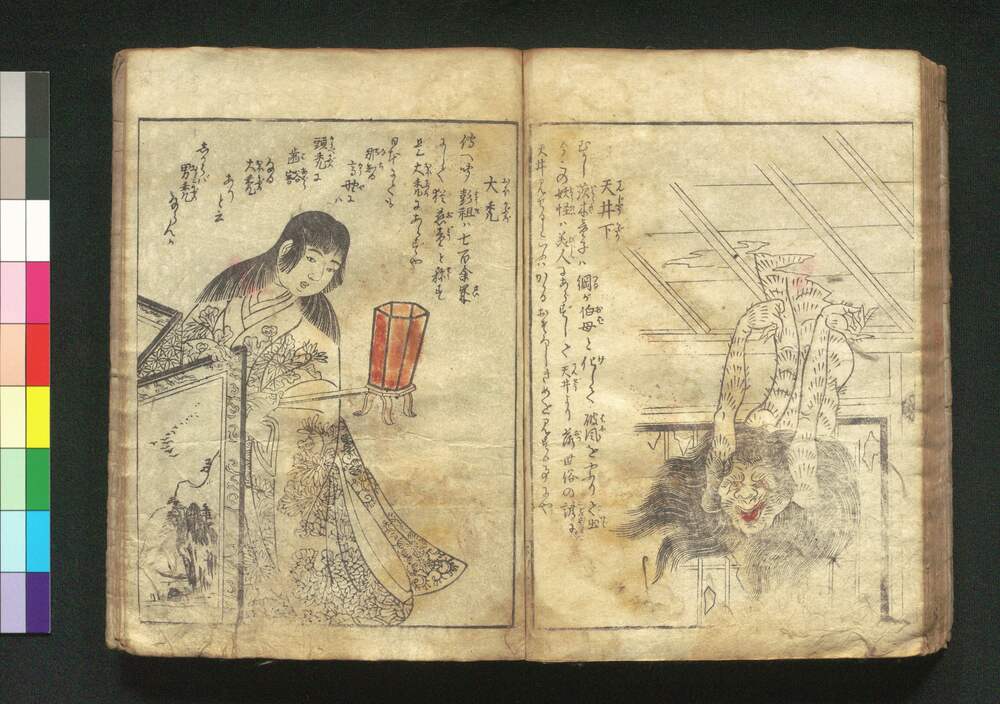 天井下
むかし茨木童子は綱が伯母と化して破風をやぶりて出
今この妖怪は美人にあらずして天井より落世俗の諺に
天井見せるといふはかゝるおそろしきめを見することにや
大禿
伝へ聞彭祖は七百余歳
にして猶慈童と称す
是大禿にあらずや
日本にても
那智高野に
頭禿に
歯豁
なる
大禿
ありと云
しからば
男禿
ならんか